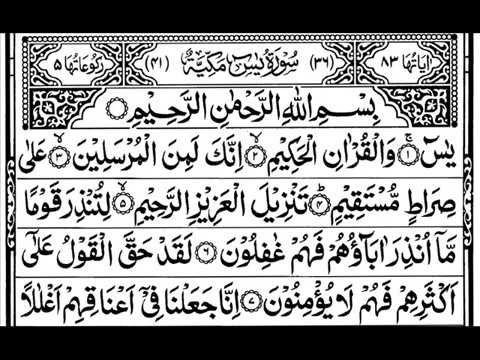 اٰیَاتُهَا ٨٣ (٣٦) سُوْرَةُ يٰسٓ مَكِّيَّةٌ (٤١) رُكُوْعَاتُهَا ٥
بِسْمِ اللّٰهِ الرَّحْمٰنِ الرَّحِيْمِ
يٰسٓ ۚ﴿١﴾ وَالْقُرْاٰنِ الْحَكِيْمِ ۙ﴿٢﴾ اِنَّكَ لَمِنَ الْمُرْسَلِيْنَ ۙ﴿٣﴾ عَلٰى
صِرَاطٍ مُّسْتَقِيْمٍ ؕ﴿٤﴾ تَنْزِيْلَ الْعَزِيْزِ الرَّحِيْمِ ۙ﴿٥﴾ لِتُنْذِرَ قَوْمًا
مَّاۤ اُنْذِرَ اٰبَآؤُهُمْ فَهُمْ غٰفِلُوْنَ ﴿٦﴾ لَقَدْ حَقَّ الْقَوْلُ عَلٰۤى
اَكْثَرِهِمْ فَهُمْ لَا يُؤْمِنُوْنَ ﴿٧﴾ اِنَّا جَعَلْنَا فِيْۤ اَعْنَاقِهِمْ اَغْلٰلًا